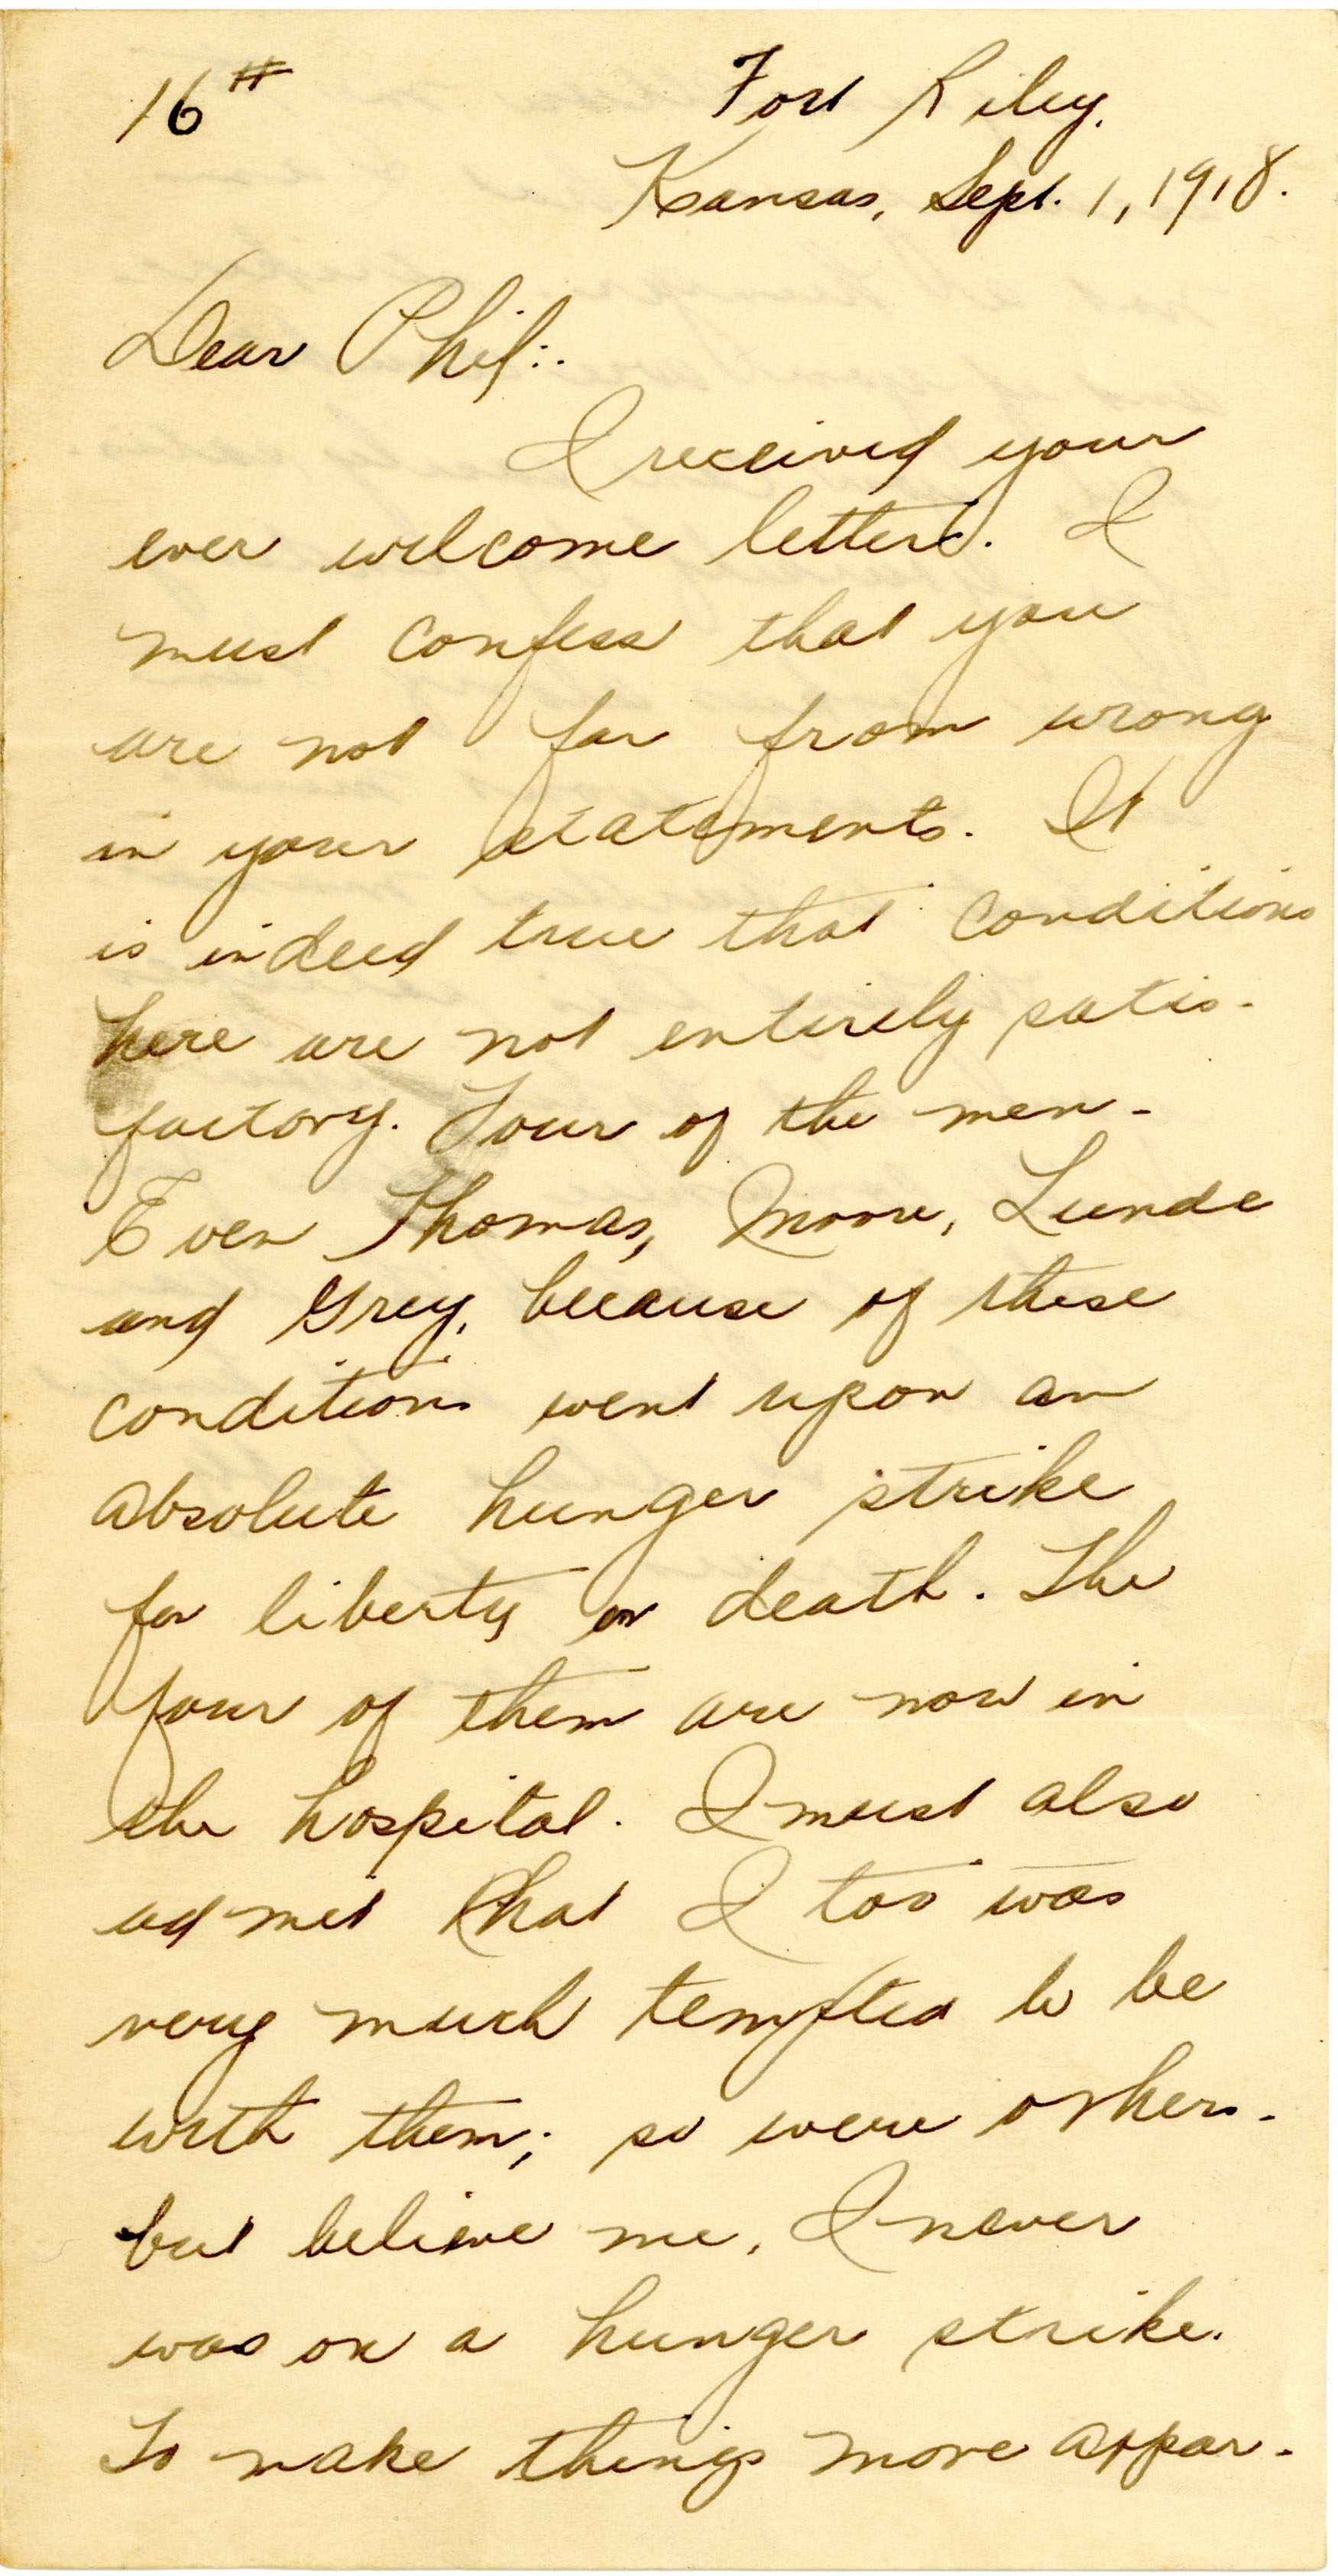 16th
Fort Riley.
Kansas, Sept. 1, 1918.
Dear Phil:.
I received your
ever welcome letters. I
must confess that you
are not far from wrong
in your statements. It
is indeed true that conditions
here are not entirely satis-
factory. Four of the men-
Even Thomas, Moore, Lunde
and Grey, because of these
conditions went upon an
absolute hunger strike
for liberty or death. The
four of them are now in
the hospital. I must also
admit that I too was
very much tempted to be
with them; so were others-
but believe me, I never
was on a hunger strike.
To make things more appar-